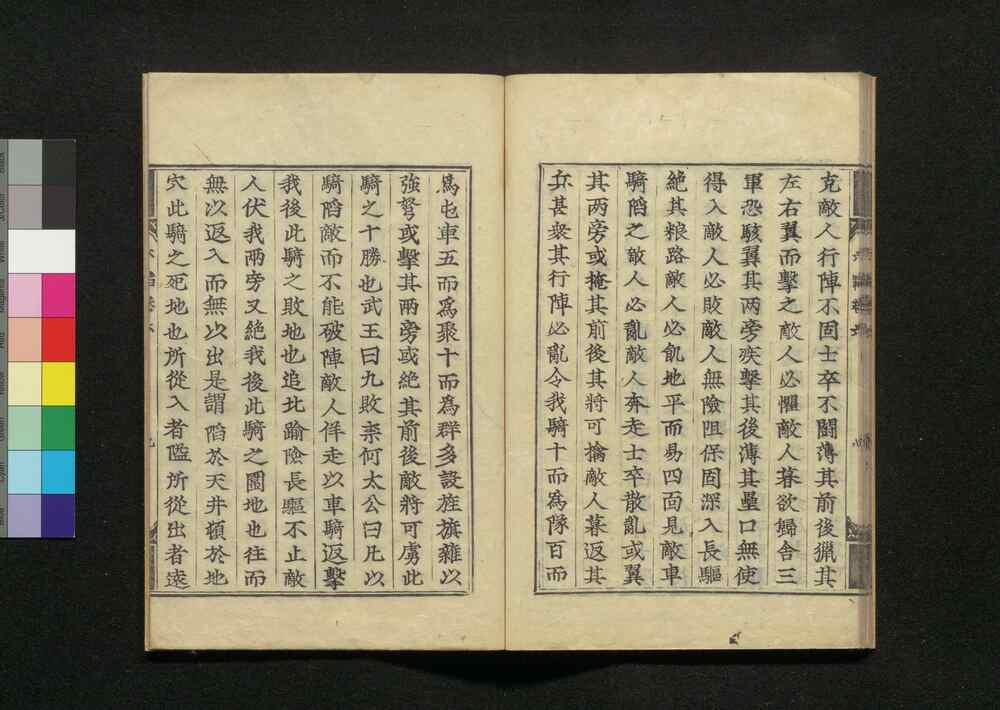 克敵人行陣不固士卒不鬪薄其前後獵其
左右翼而擊之敵人必懼敵人暮欲歸舍三
軍恐駭翼其兩旁疾擊其後薄其壘口無使
得入敵人必敗敵人無險阻保固深入長驅
絶其粮路敵人必飢地平而易四面見敵車
騎陷之敵人必亂敵人奔走士卒散亂或翼
其两旁或掩其前後其將可擒敵人暮返其
兵甚衆其行陣必亂令我騎十而爲隊百而
爲屯車五而爲聚十而為群多設旌旗雜以
強弩或擊其兩旁或絶其前後敵將可虜此
騎之十勝也武王曰九敗柰何太公曰凡以
騎陷敵而不能破陣敵人佯走以車騎返擊
我後此騎之敗地也追北踰險長驅不止敵
人伏我兩旁又絶我後此騎之圍地也往而
無以返入而無以出是謂陷於天井頓於地
穴此騎之死地也所從入者隘所從出者逺